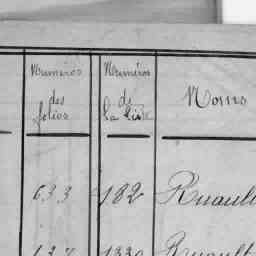 Numéros Numéros
des de Noms
folios la liste
633 182 Ruault
Ruault